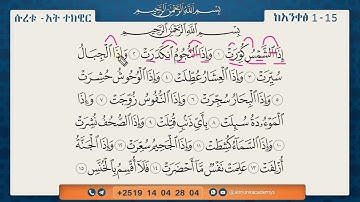 ሱረቱ -አት ተክዊር
بِسْمِ اللَّهِ الرَّحْمَٰنِ الرَّحِيمِ
ከአንቀፅ 1-15
بِسْمِ اللَّهِ الرَّحْمَٰنِ الرَّحِيمِ
إِذَا الشَّمْسُ كُوِّرَتْ ١ وَإِذَا النُّجُومُ انكَدَرَتْ ٢ وَإِذَا الْجِبَالُ
سُيِّرَتْ ٣ وَإِذَا الْعِشَارُ عُطِّلَتْ ٤ وَإِذَا الْوُحُوشُ حُشِرَتْ
٥ وَإِذَا الْبِحَارُ سُجِّرَتْ ٦ وَإِذَا النُّفُوسُ زُوِّجَتْ ٧ وَإِذَا
الْمَوْءُودَةُ سُئِلَتْ ٨ بِأَيِّ ذَنبٍ قُتِلَتْ ٩ وَإِذَا الصُّحُفُ نُشِرَتْ
١٠ وَإِذَا السَّمَاءُ كُشِطَتْ ١١ وَإِذَا الْجَحِيمُ سُعِّرَتْ ١٢ وَإِذَا الْجَنَّةُ
أُزْلِفَتْ ١٣ عَلِمَتْ نَفْسٌ مَّا أَحْضَرَتْ ١٤ فَلَا أُقْسِمُ بِالْخُنَّسِ ١٥
+2519 14 04 28 04